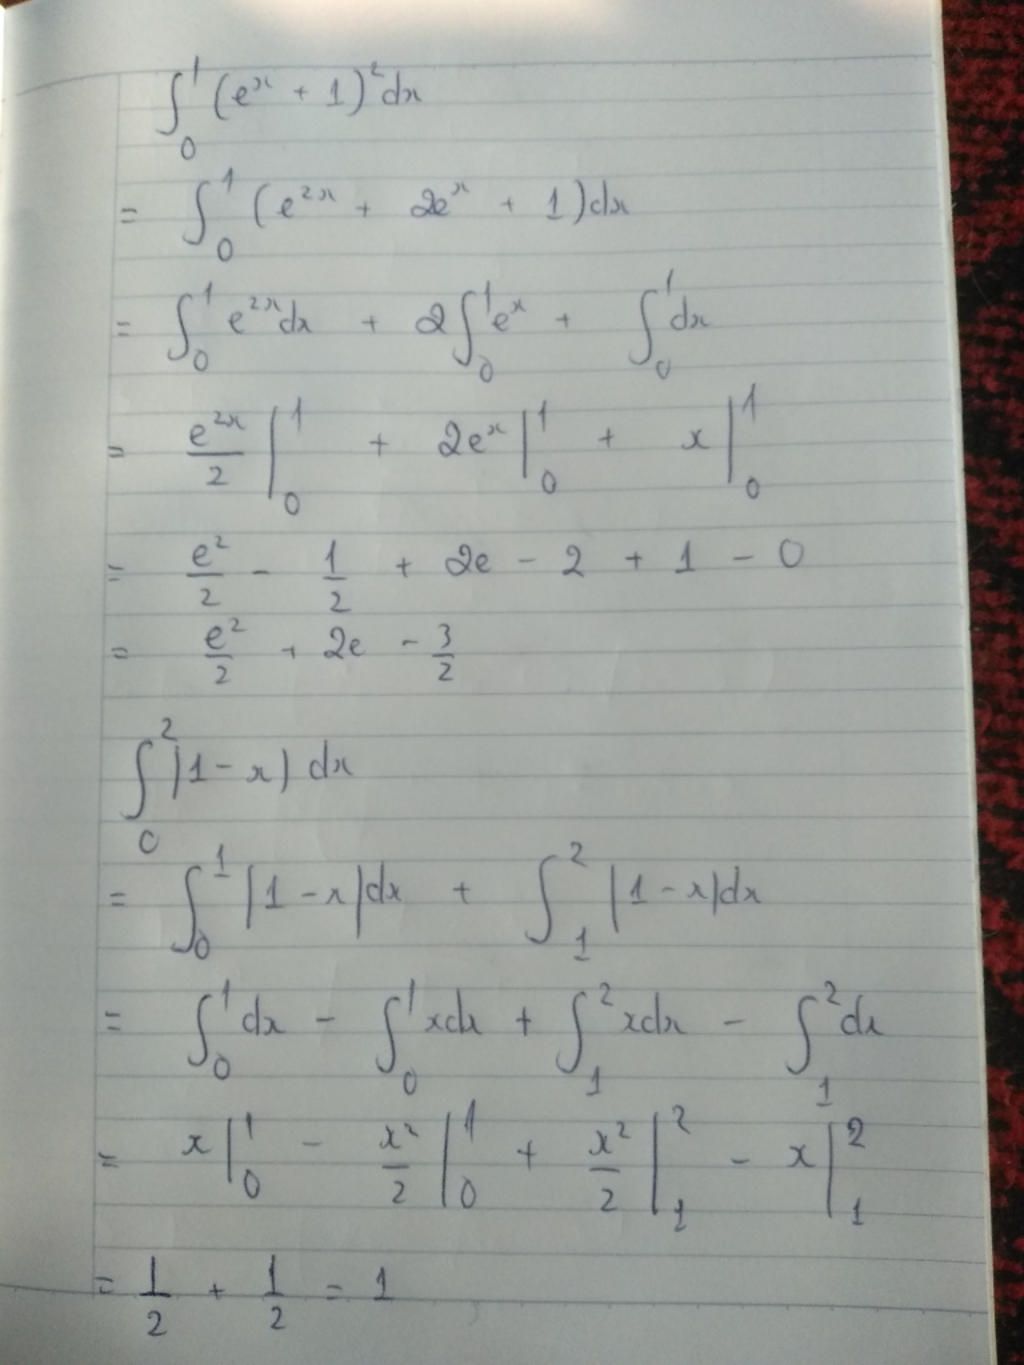 ∫₀¹ (eˣ + 1)² dx
= ∫₀¹ (e²ˣ + 2eˣ + 1) dx
= ∫₀¹ e²ˣ dx + 2 ∫₀¹ eˣ + ∫₀¹ dx
= e²ˣ/2 |₀¹ + 2eˣ |₀¹ + x |₀¹
= e²/2 - 1/2 + 2e - 2 + 1 - 0
= e²/2 + 2e - 3/2
∫₀² |1 - x| dx
= ∫₀¹ |1 - x| dx + ∫₁² |1 - x| dx
= ∫₀¹ dx - ∫₀¹ x dx + ∫₁² x dx - ∫₁² dx
= x |₀¹ - x²/2 |₀¹ + x²/2 |₁² - x |₁²
= 1/2 + 1/2 = 1